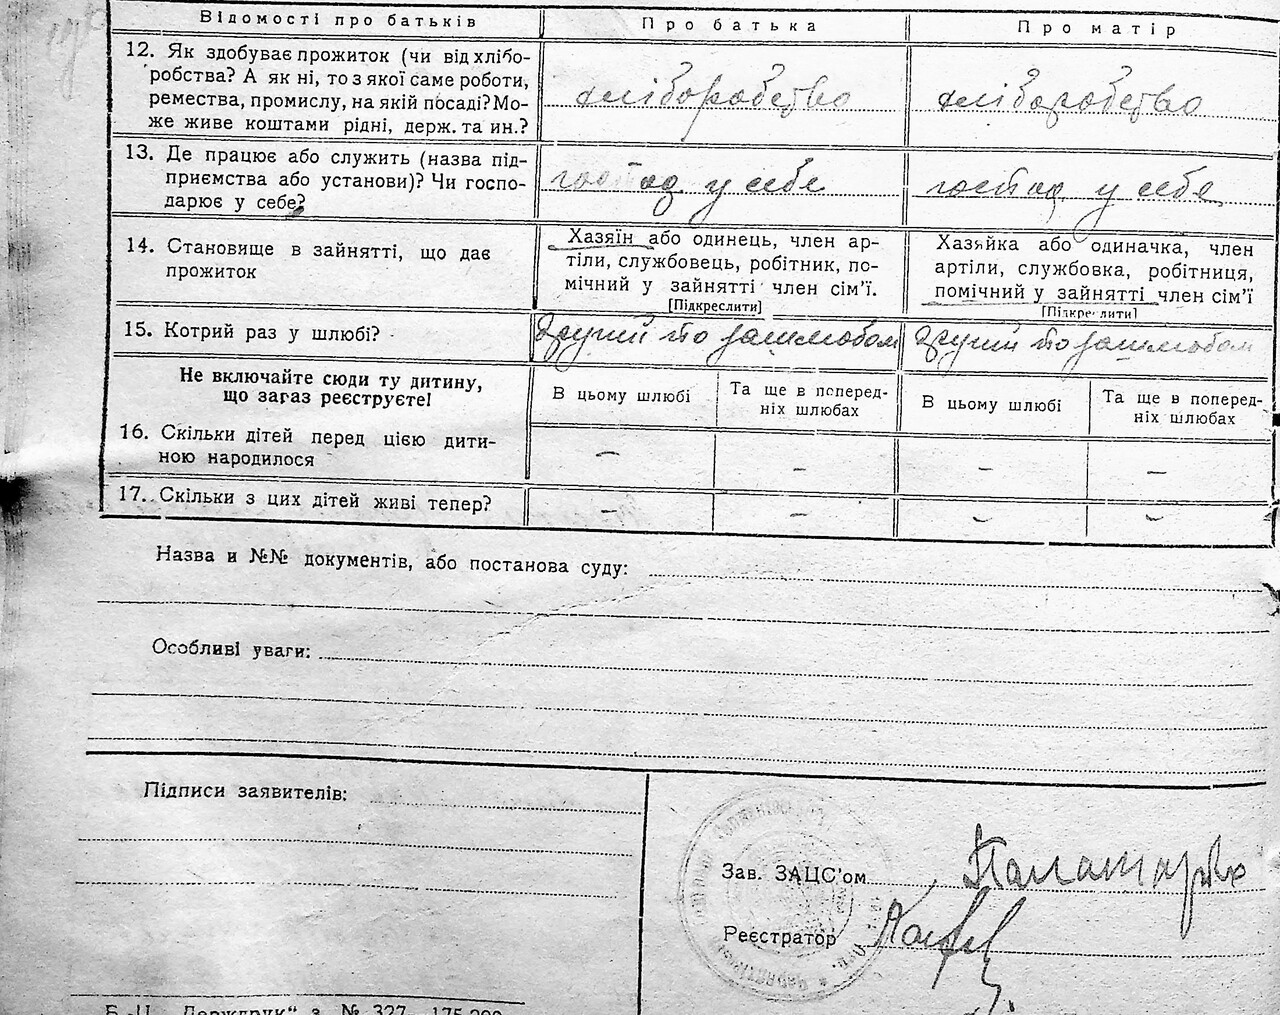 Відомості про батьків
Про батька
Про матір
12. Як здобуває прожиток (чи від хлібо-
робства? А як ні, то з якої саме роботи,
ремества, промислу, на якій посаді? Мо-
же живе коштами рідні, держ. та ин.?
хліборобство
хліборобство
13. Де працює або служить (назва під-
приємства або установи)? Чи госпо-
дарює у себе?
господ у себе
господ у себе
14. Становище в зайнятті, що дає
прожиток
Хазяїн або одинець, член ар-
тіли, службовець, робітник, по-
мічний у зайнятті член сім'ї.
[Підкреслити]
Хазяйка або одиначка, член
артіли, службовка, робітниця,
помічний у зайнятті член сім'ї
[Підкреслити]
15. Котрий раз у шлюбі?
другий по зашлюбом
другий по зашлюбом
Не включайте сюди ту дитину,
що загаз реєструєте!
В цьому шлюбі
Та ще в поперед-
ніх шлюбах
В цьому шлюбі
Та ще в поперед-
ніх шлюбах
16. Скільки дітей перед цією дити-
ною народилося
– – – –
17. Скільки з цих дітей живі тепер?
– – – –
Назва и №№ документів, або постанова суду:
Особливі уваги:
Підписи заявителів:
Зав. ЗАЦС'ом
Реєстратор
Б.-Ц. „Держдрук“ з. № 327. 175.200